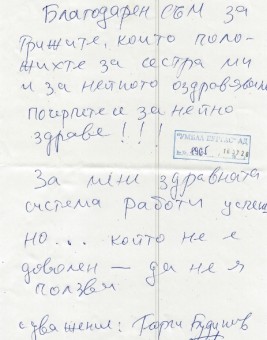 Благодарен съм за
грижите, които поло-
жихте за сестра ми
и за нейното оздравяване
погрпите се за нейно
здраве!!!
"УМБАЛ БУРГАС" АД
За мен здравната
система работи успеш
но... който не е
доволен — да не я
ползва
с уважение: Георги